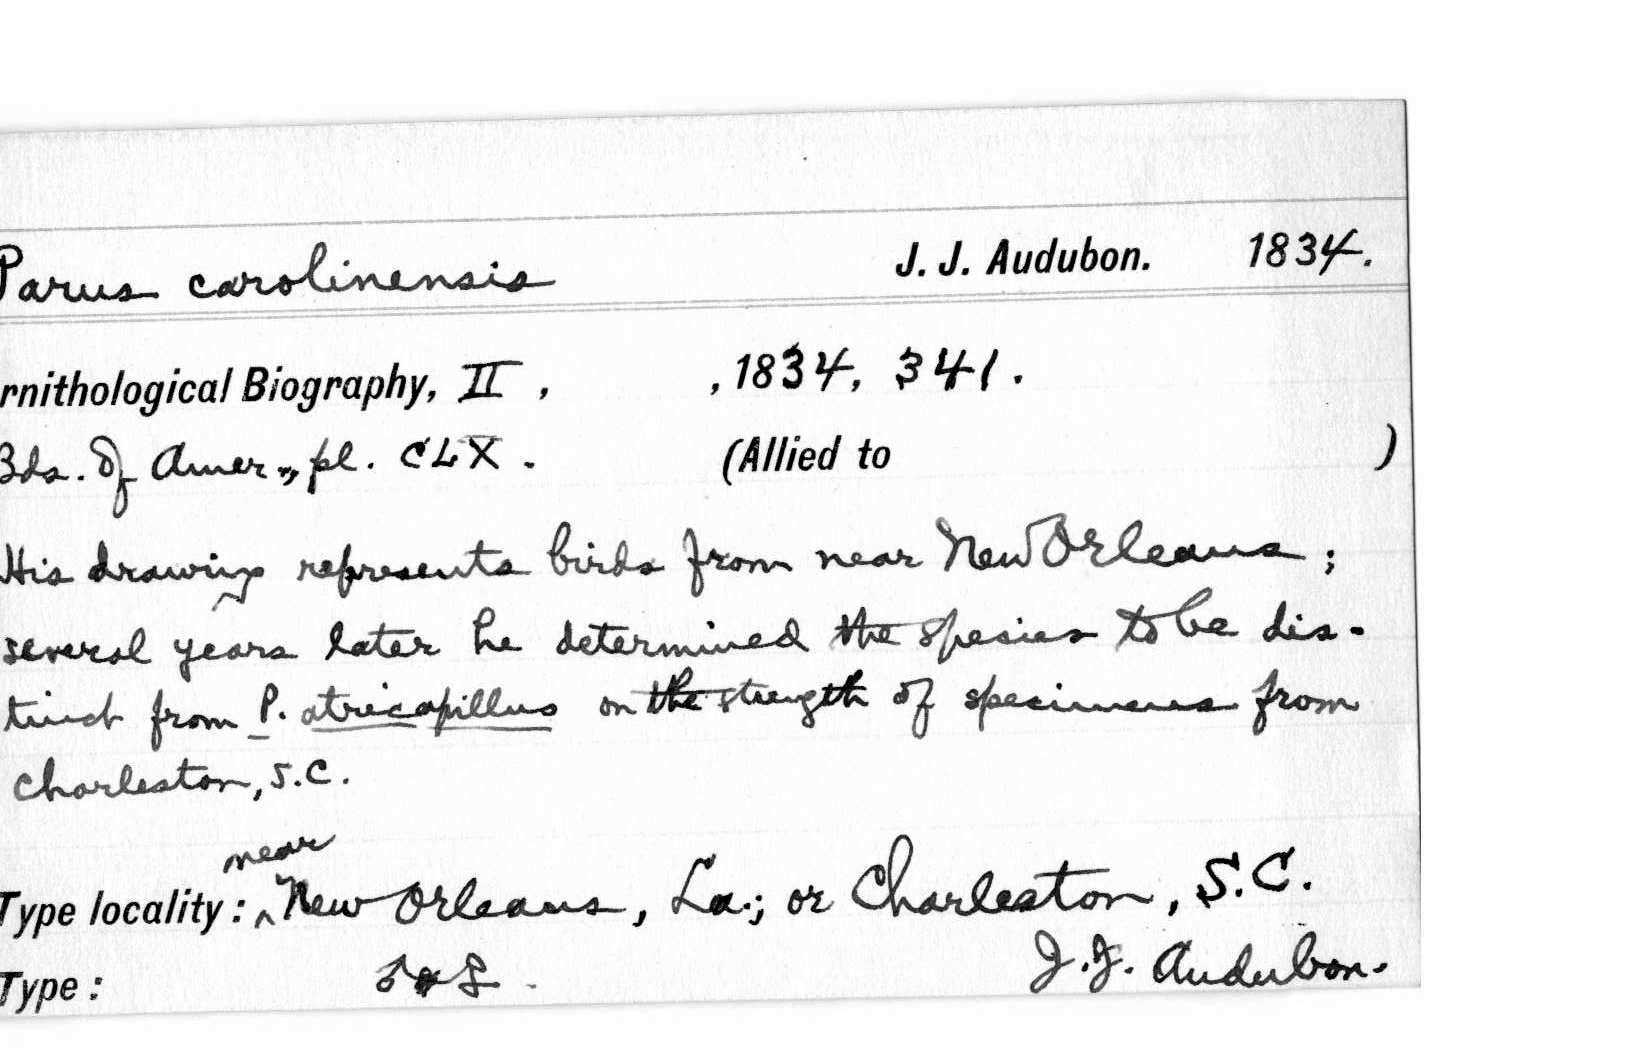 Parus carolinensis J. J. Audubon. 1834.
rnithological Biography, II, , 1834, 341.
Bds. of Amer., pl. CLX. (Allied to )
His drawing represents birds from near New Orleans;
several years later he determined the species to be dis-
tinct from P. atricapillus on the strength of specimens from
Charleston, S.C.
near
Type locality: ^New Orleans, La.; or Charleston, S.C.
Type: J.J. Audubon.